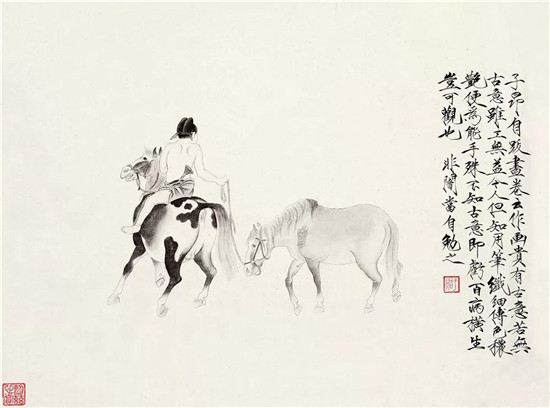 子昂自跋畫卷云作画貴有古意若無
古意雖工無益今人但知用筆纖細傅色穠
艷便為能手殊不知古意即虧百病橫生
豈可觀也　非闇當自勉之